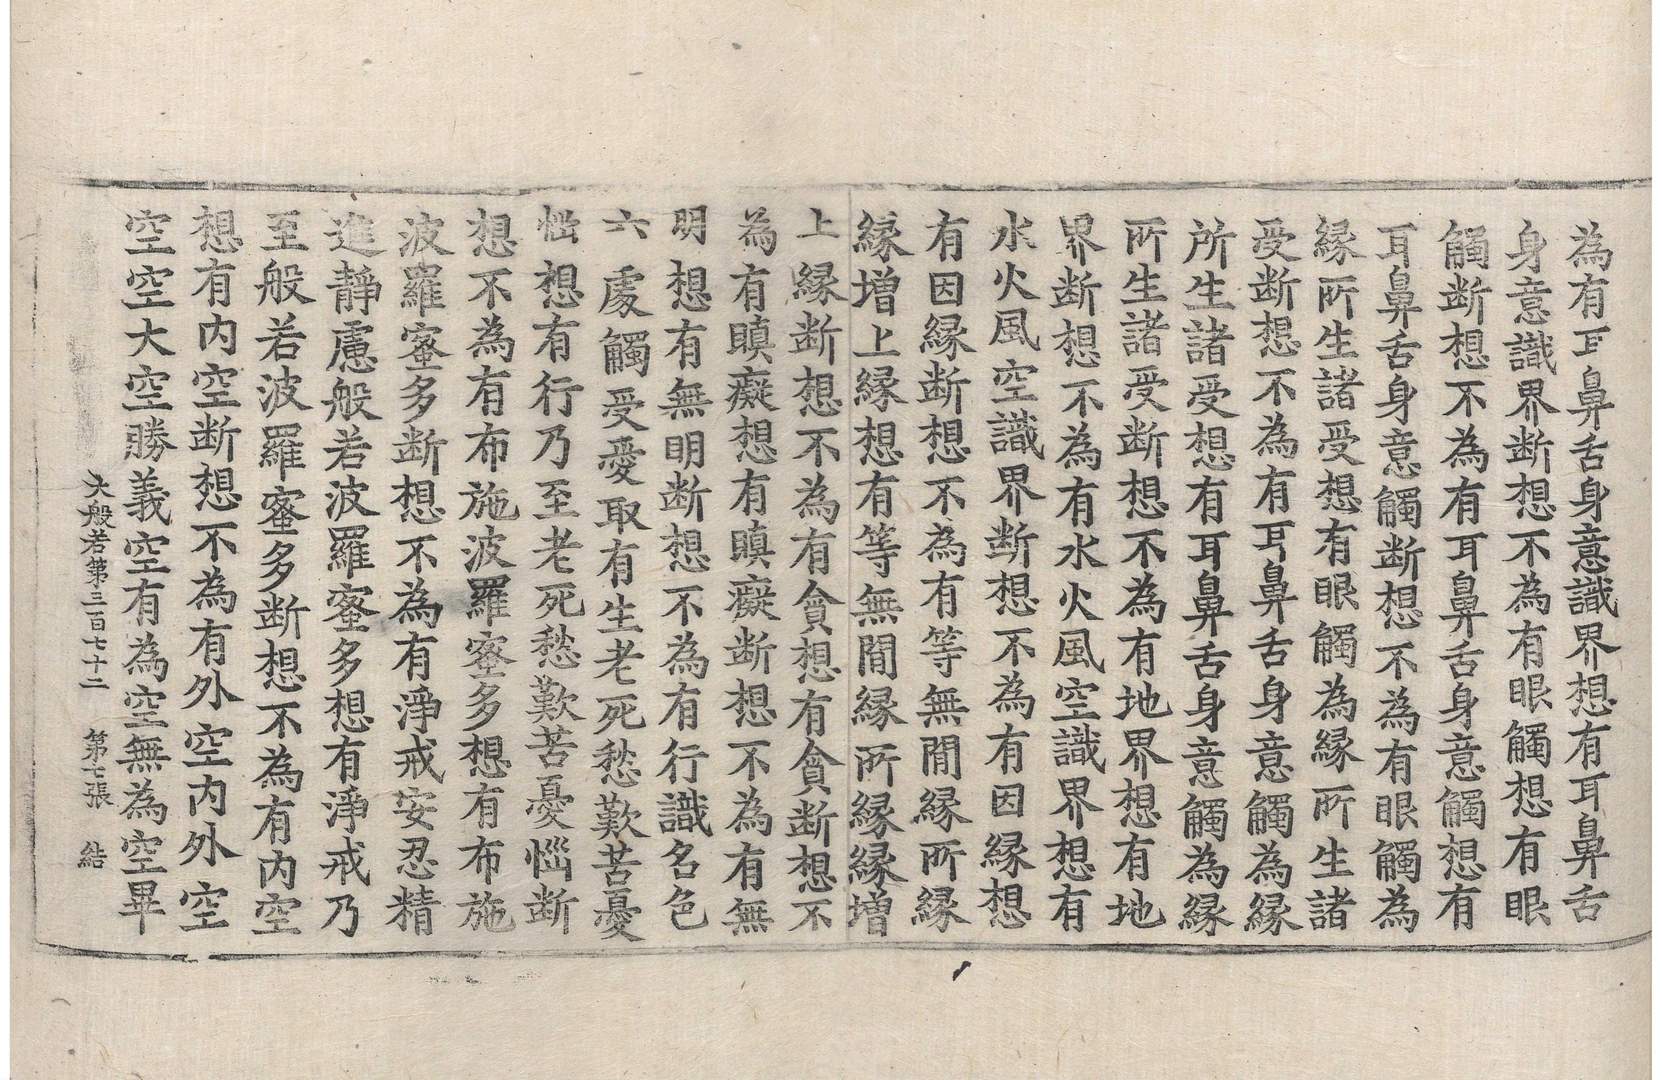 為有耳鼻舌身意識界想有耳鼻舌
身意識界断想不為有眼觸想有眼
觸断想不為有耳鼻舌身意觸想有
耳鼻舌身意觸断想不為有眼觸為
縁所生諸受想有眼觸為縁所生諸
受断想不為有耳鼻舌身意觸為縁
所生諸受想有耳鼻舌身意觸為縁
所生諸受断想不為有地界想有地
界断想不為有水火風空識界想有
水火風空識界断想不為有因縁想
有因縁断想不為有等無間縁所縁
縁增上縁想有等無間縁所縁縁增
上縁断想不為有貪想有貪断想不
為有瞋癡想有瞋癡断想不為有無
明想有無明断想不為有行識名色
六處觸受愛取有生老死愁歎苦憂
惱想有行乃至老死愁歎苦憂惱断
想不為有布施波羅蜜多想有布施
波羅蜜多断想不為有淨戒安忍精
進靜慮般若波羅蜜多想有淨戒乃
至般若波羅蜜多断想不為有內空
想有內空断想不為有外空內外空
空空大空勝義空有為空無為空畢
大般若第三百七十二　第七張　結